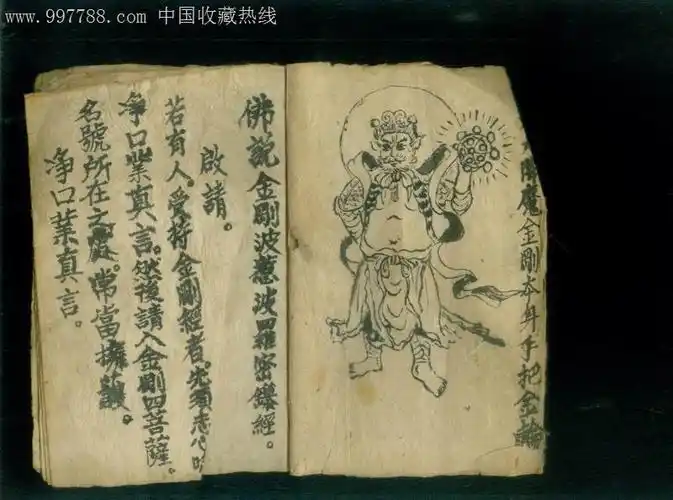 www.997788.com 中国收藏热线
魔金剛本身手把金輪
佛說金剛波惹波羅密經。
啟請。
若有人。受持金剛經者。先須志心唸
淨口業真言。然後請入金剛四菩薩。
名號所在之處。常當擁護。
淨口業真言。